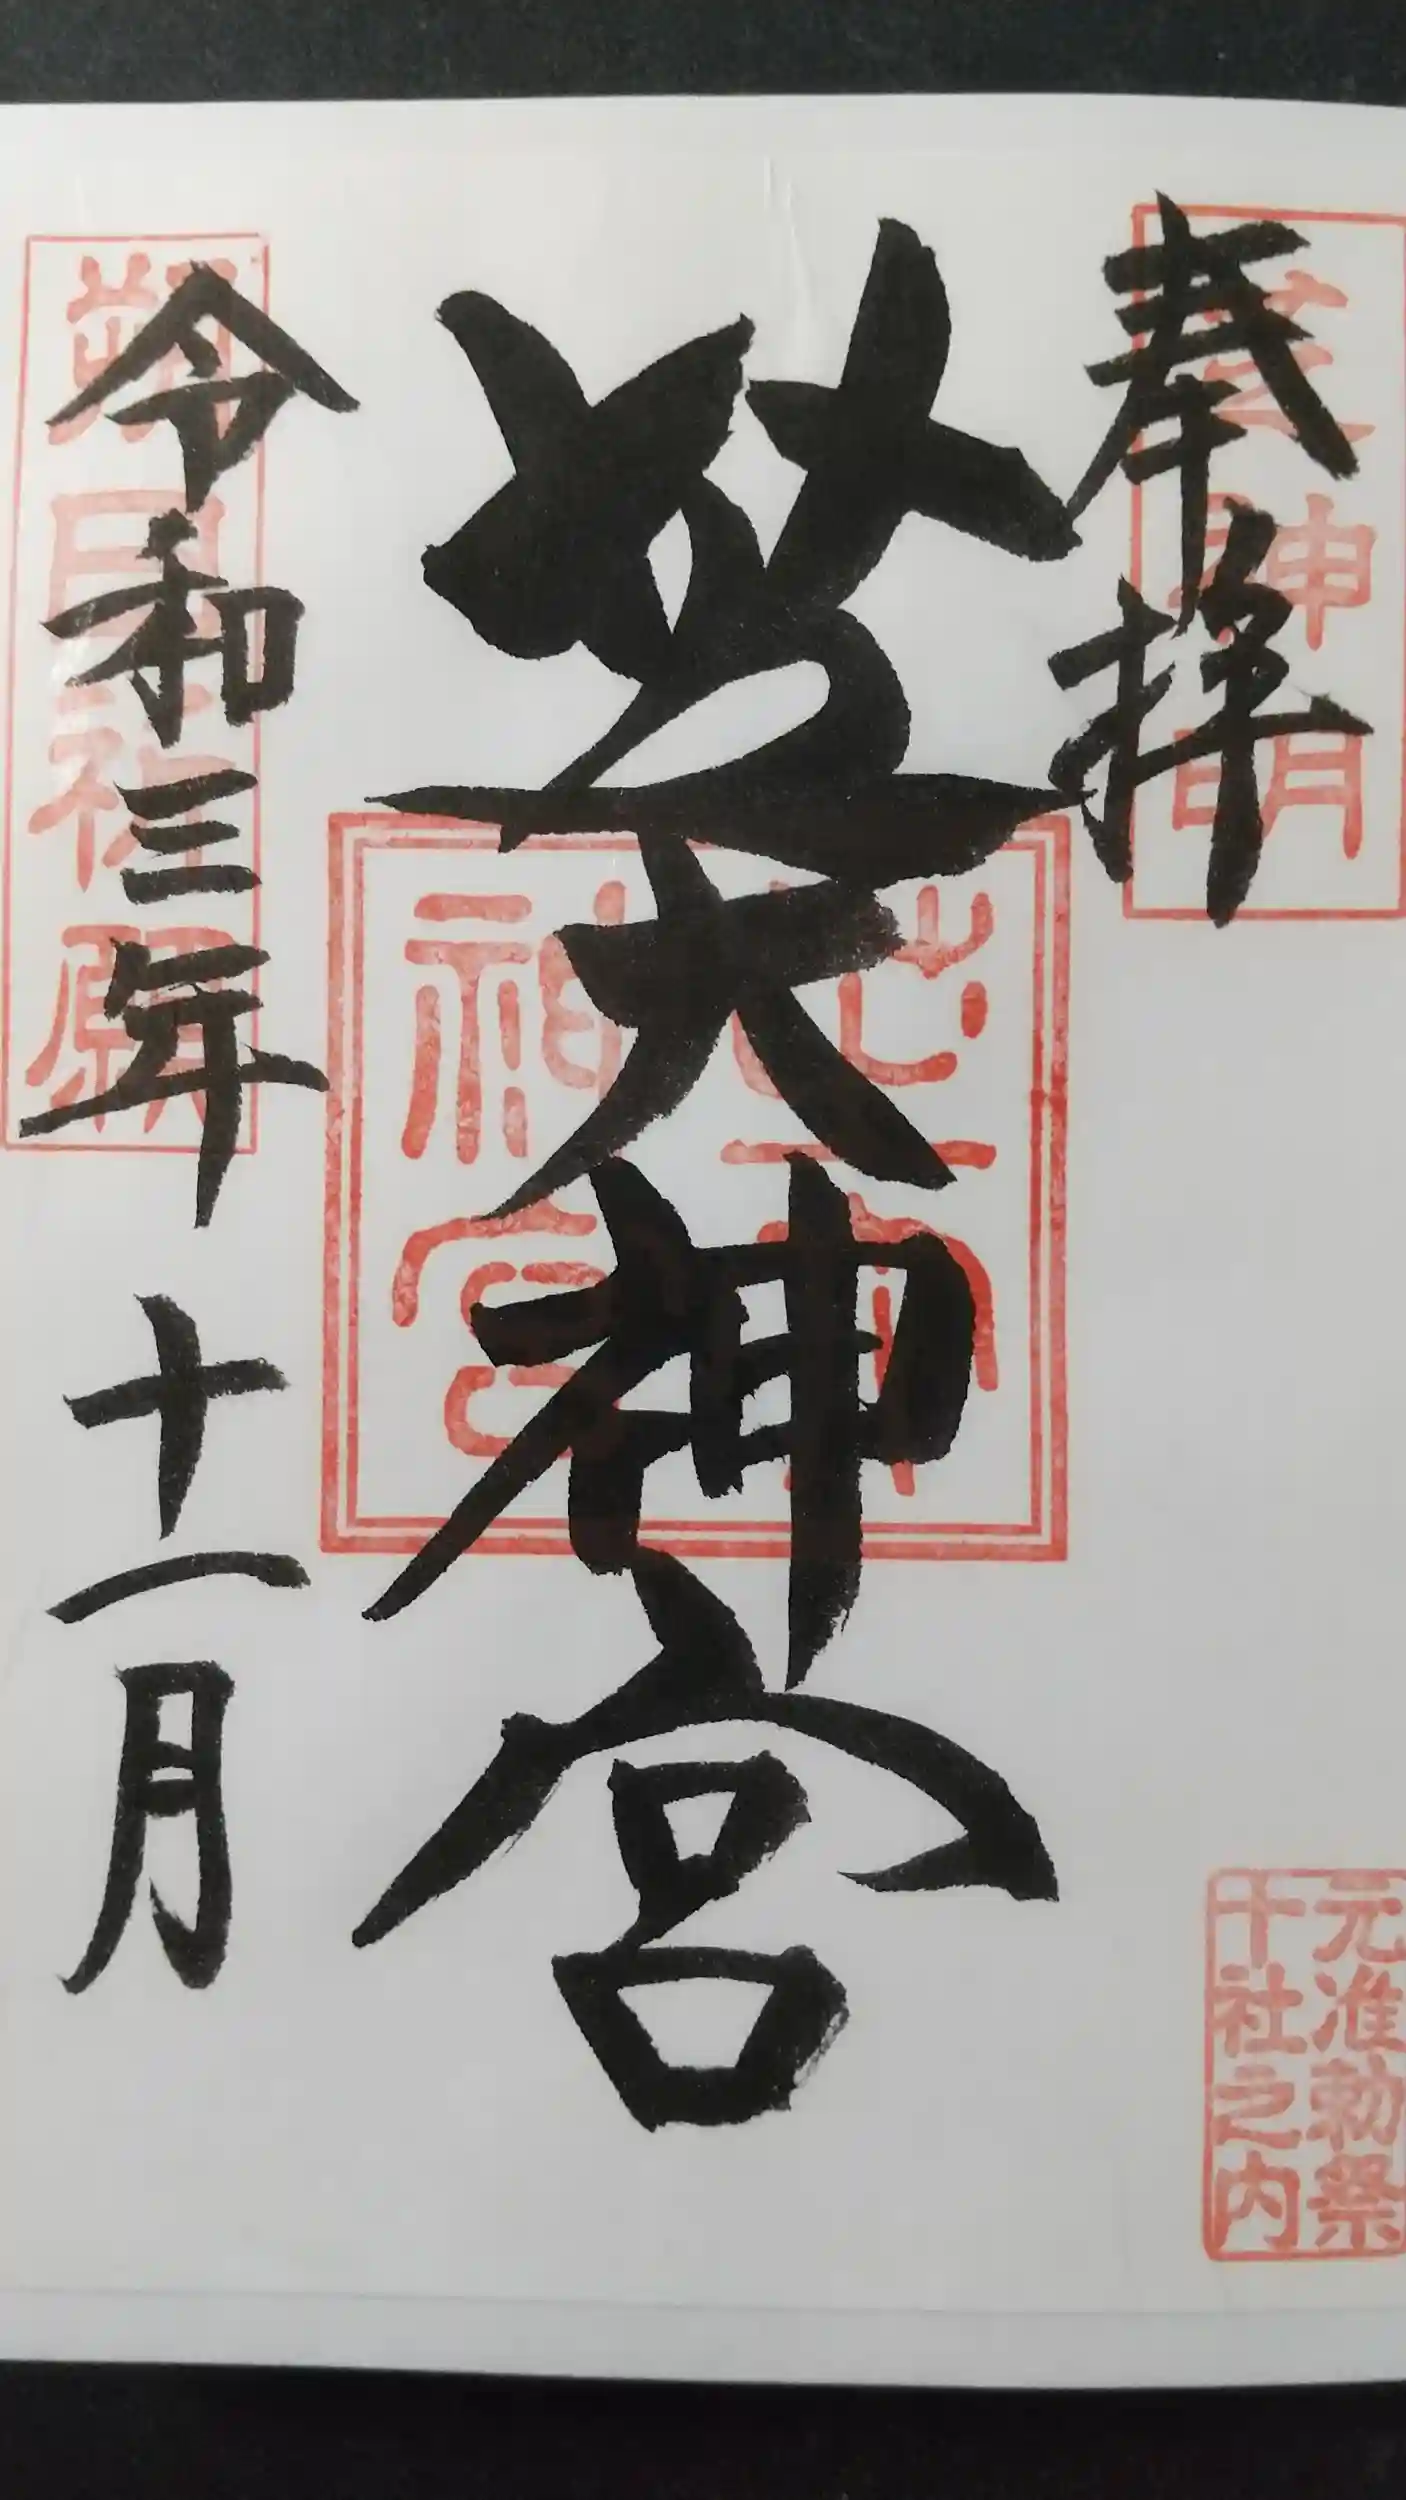 奉拝
芝神明
元准勅祭
十社之内
芝大神宮
芝大神宮
令和三年十一月
朔日祈願